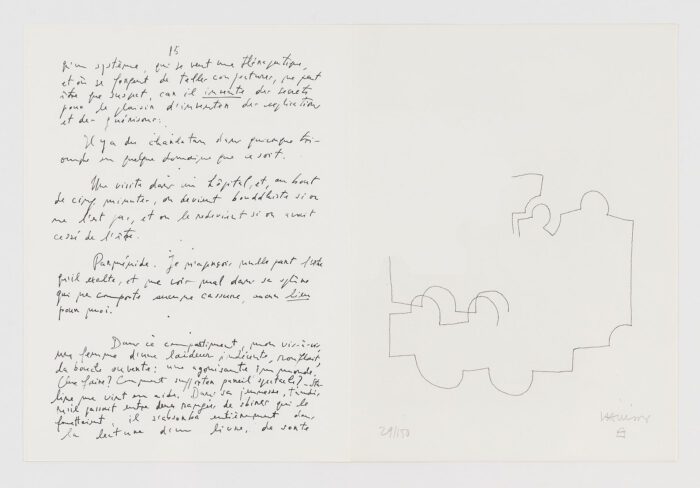 15
qu'un système, qui se veut une thérapeutique,
et où se forgent de telles conjectures, ne peut
être que suspect, car il invente des secrets
pour le plaisir d'invention des explications
et des guérisons.
Il y a du charlatan dans quiconque tri-
omphe en quelque domaine que ce soit.
Une visite dans un hôpital, et, au bout
de cinq minutes, on devient bouddhiste si on
ne l'est pas, et on le redevient si on avait
cessé de l'être.
Parménide. Je n'aperçois nulle part l'être
qu'il exalte, et me vois mal dans sa sphère
qui ne comporte aucune cassure, aucun lieu
pour moi.
Dans ce compartiment, mon vis-à-vis,
une femme d'une laideur indécente, ronflait,
la bouche ouverte: une agonisante immonde.
Que faire? Comment supporter pareil spectacle? - Sta-
line me vint en aide. Dans sa jeunesse, tandis
qu'il passait entre deux rangées de sbires qui le
fouettaient, il s'absorba entièrement dans
la lecture d'un livre, de sorte
29/150